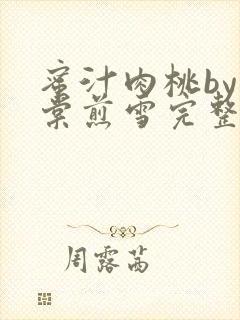 蜜汁肉桃by
棠煎雪完整
周露茜